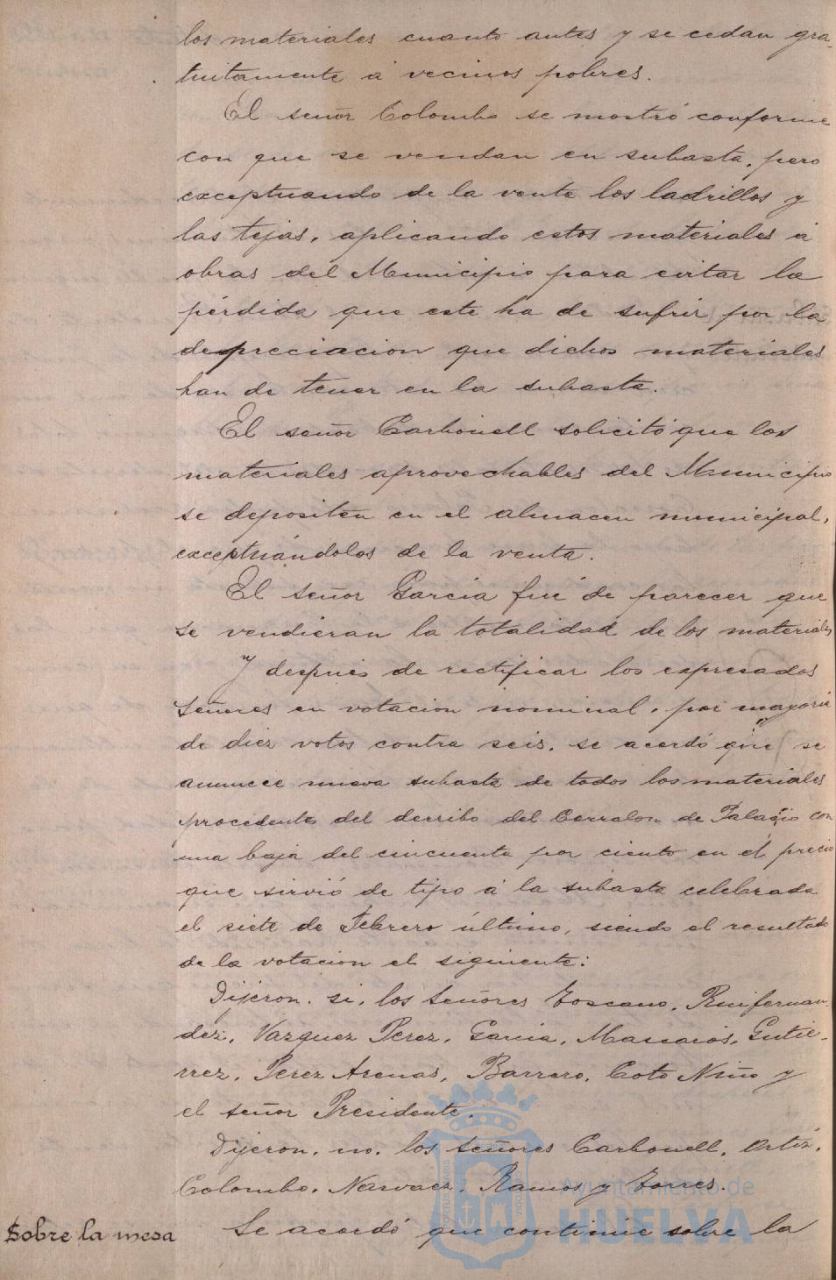 los materiales cuanto antes y se cedan gra-
tuitamente á vecinos pobres.
El señor Colombo se mostró conforme
con que se vendan en subasta, pero
exceptuando de la venta los ladrillos y
las tejas, aplicando estos materiales á
obras del Municipio para evitar la
pérdida que este ha de sufrir por la
depreciacion que dichos materiales
han de tener en la subasta.
El señor Carbonell solicitó que los
materiales aprovechables del Municipio
se depositen en el almacen municipal,
exceptuándolos de la venta.
El señor Garcia fué de parecer que
se vendieran la totalidad de los materiales
Y después de rectificar los expresados
señores en votacion nominal, por mayoria
de diez votos contra seis, se acordó que se
anuncie nueva subasta de todos los materiales
procedentes del derribo del Corralon de Palacio con
una baja del cincuenta por ciento en el precio
que sirvió de tipo á la subasta celebrada
el siete de Febrero último, siendo el resultado
de la votacion el siguiente:
Dijeron, si, los señores Toscano, Ruifernan-
dez, Vazquez Perez, Garcia, Gutie-
rrez, Perez Arenas, Barrero, Coto Niño y
el señor Presidente.
Dijeron, no, los señores Carbonell, Ortiz,
Colombo, Narvaez, Ramos y Torres.
Sobre la mesa Se acordó que continúe sobre la
Ayuntamiento de
HUELVA